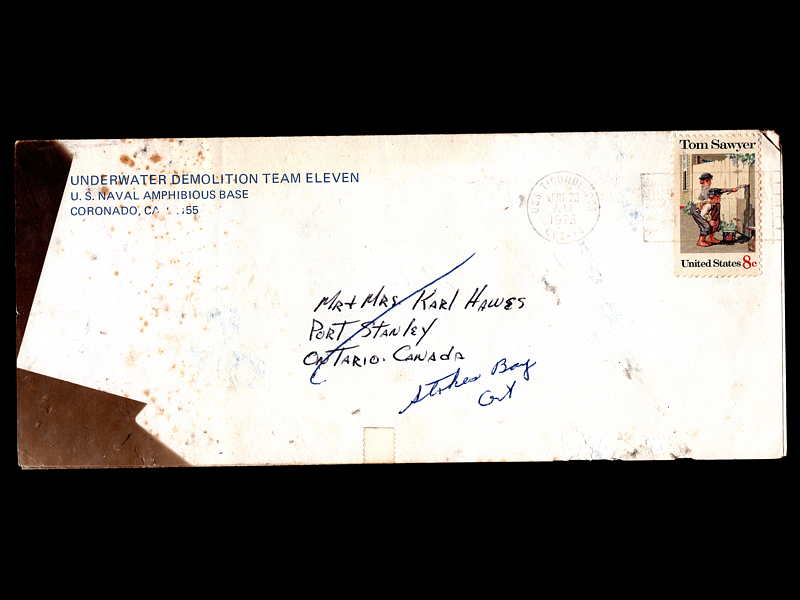 UNDERWATER DEMOLITION TEAM ELEVEN
U. S. NAVAL AMPHIBIOUS BASE
CORONADO, CA 55
Tom Sawyer
United States 8c
USS
1973
Mr + Mrs Karl Hawes
Port Stanley
Ontario. Canada
Stokes Bay
Ont